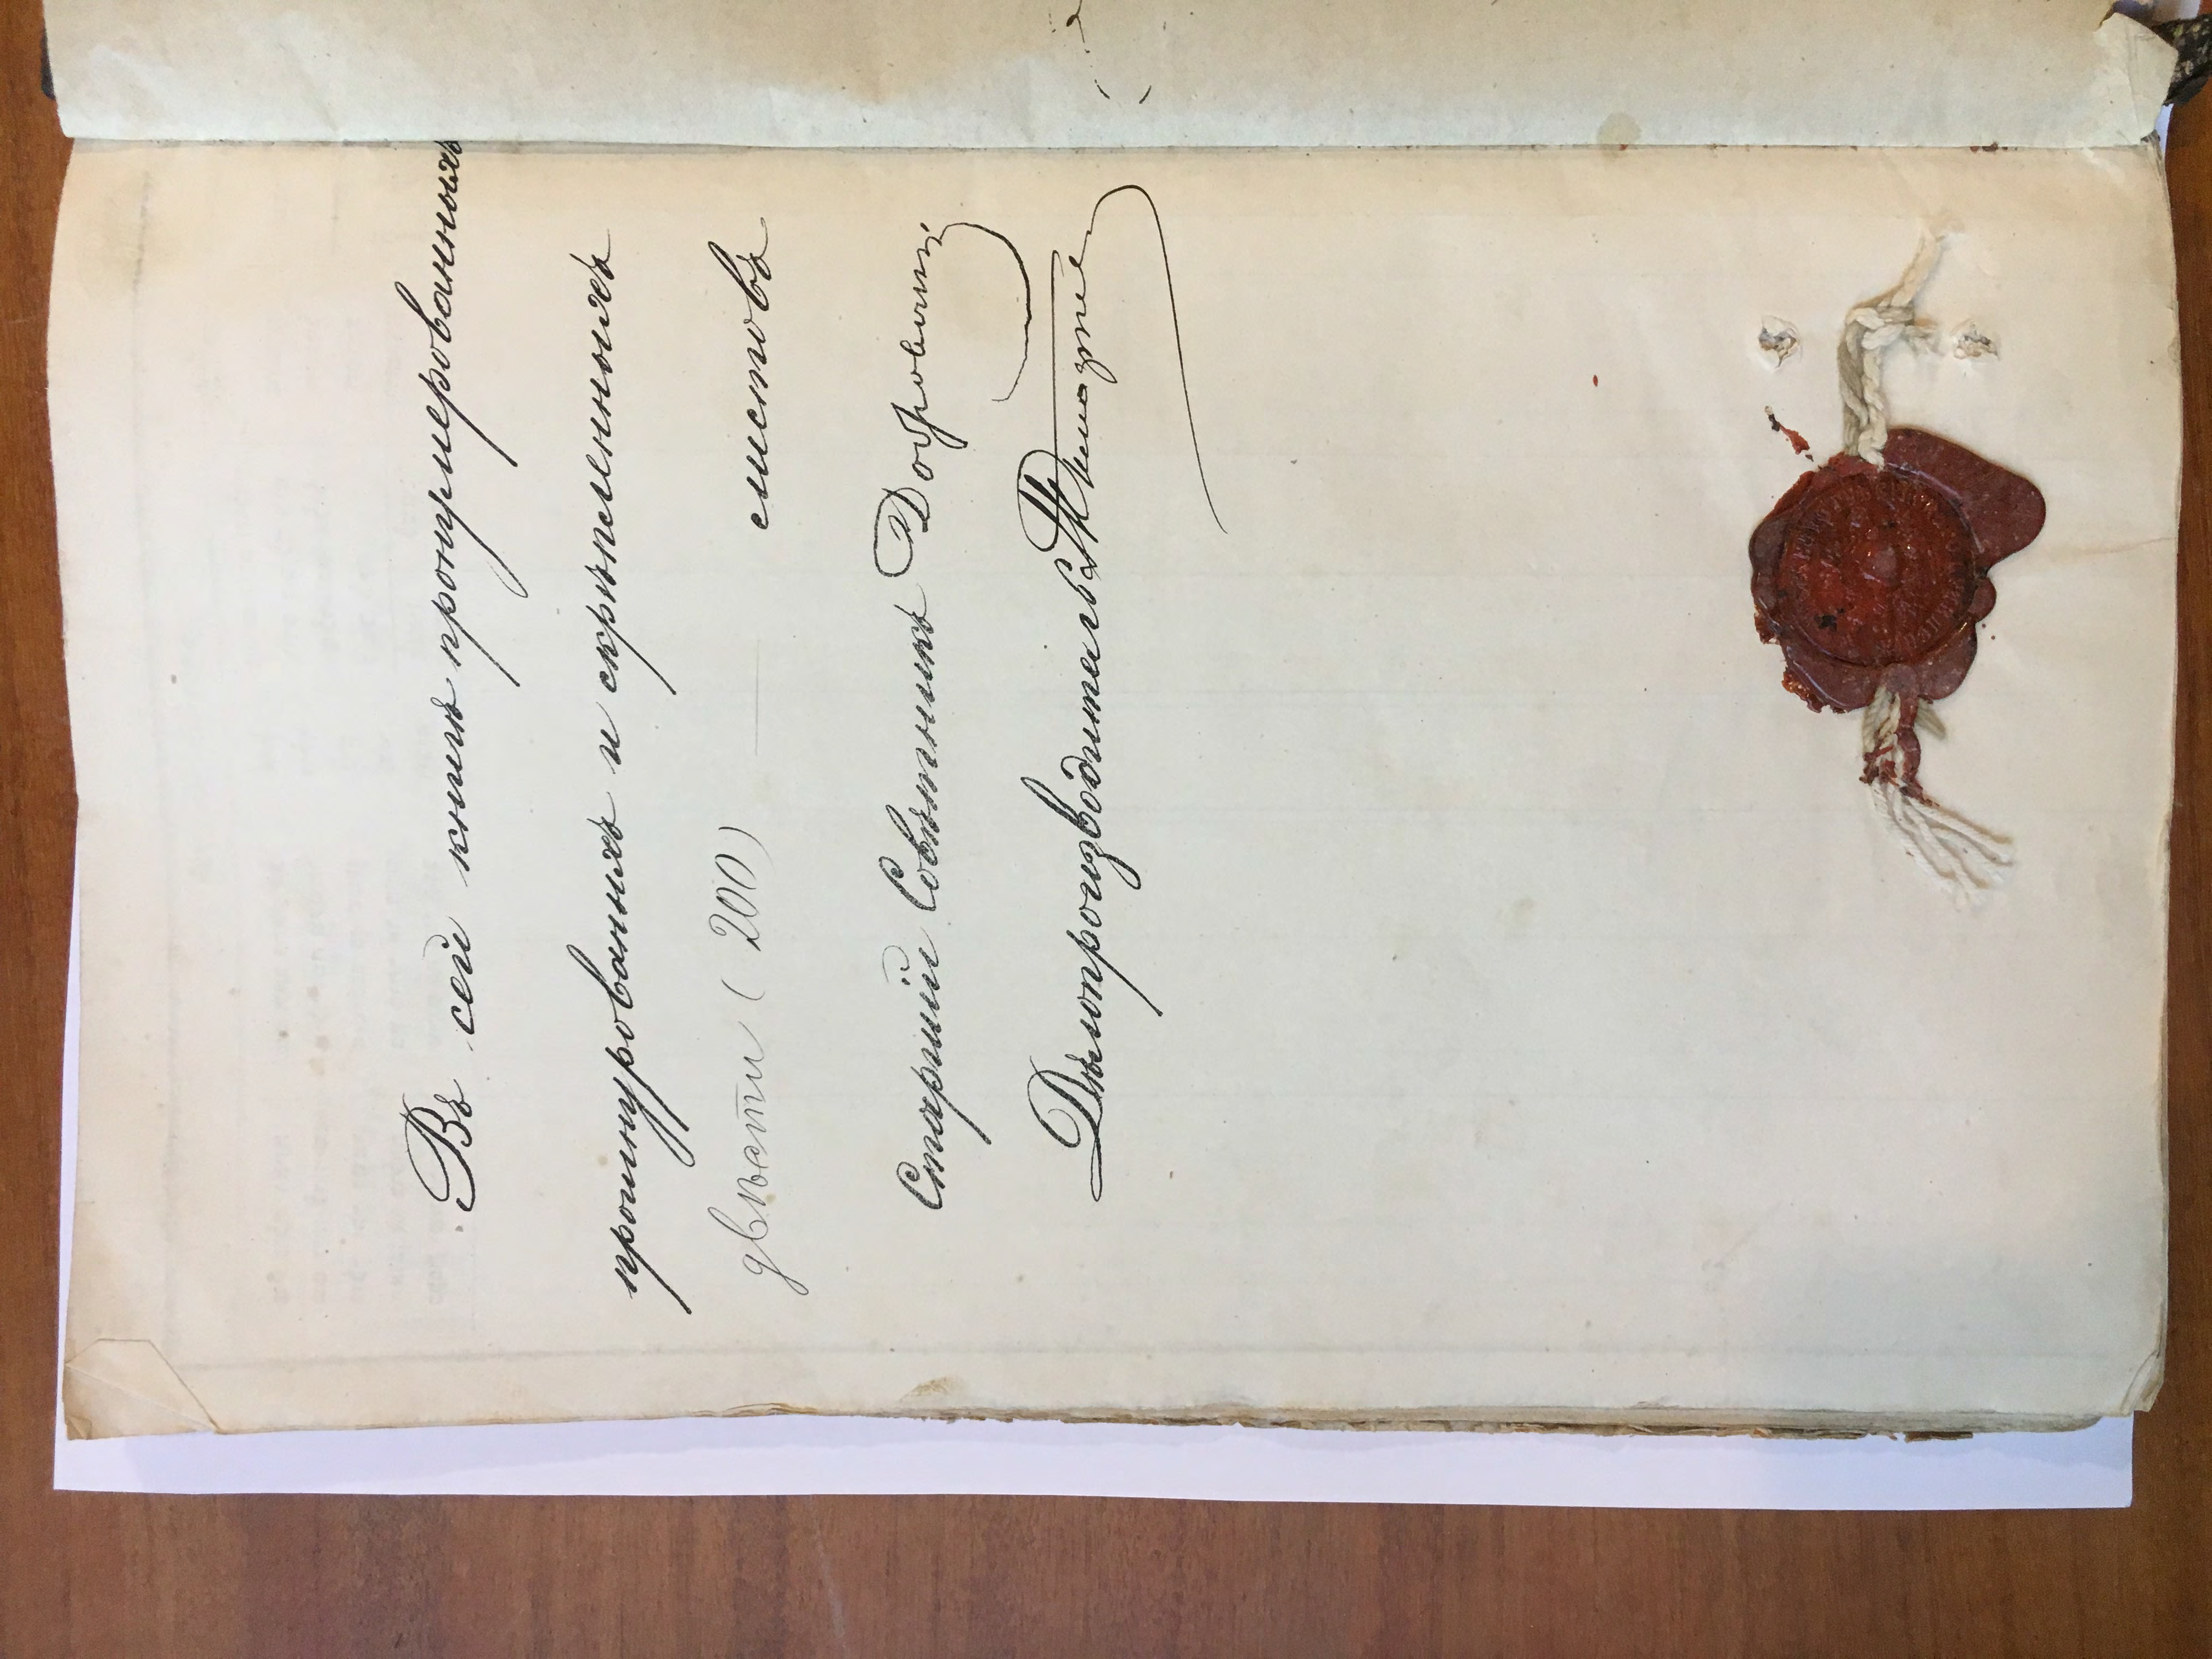 Въ сей книгѣ пронумерованныхъ
прошнурованныхъ и скрѣпленныхъ
двѣсти (200) листовъ
Старшій Совѣтникъ
Дѣлопроизводитель